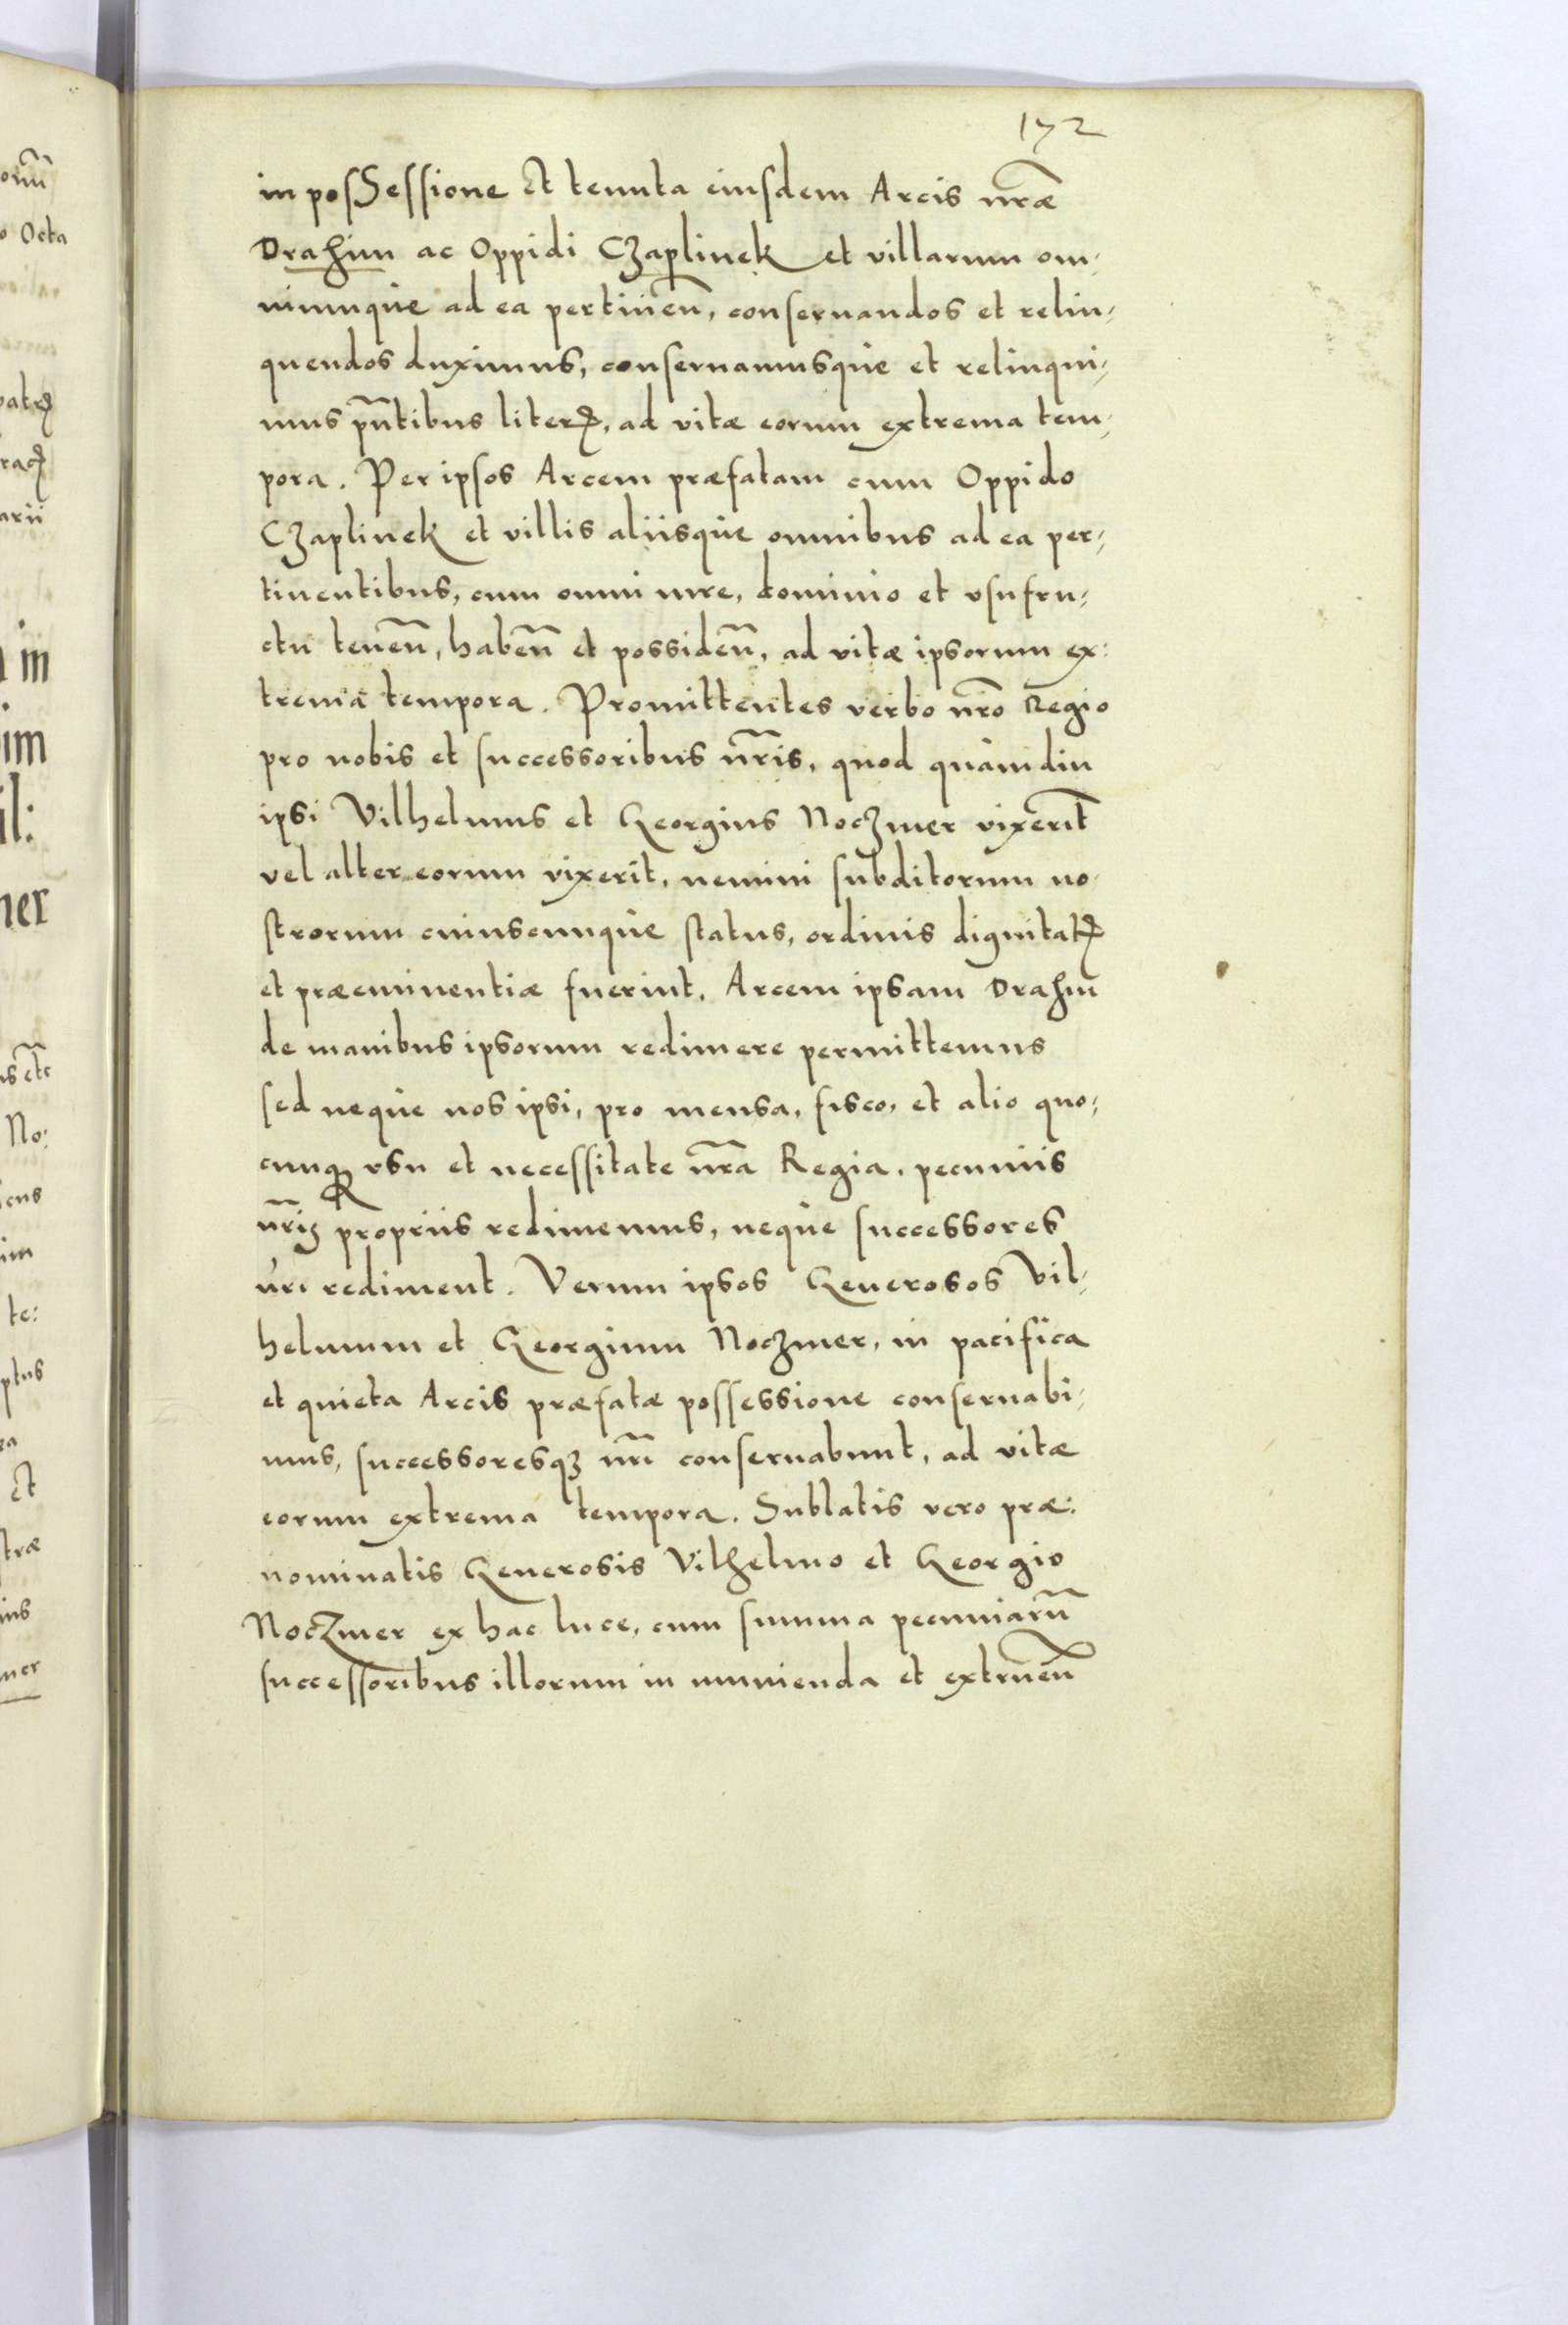 172
in possessione et tenuta eiusdem Arcis nr̃æ
Drahim ac Oppidi Czaplinek et villarum om-
niumque ad ea pertineñ, conseruandos et relin-
quendos duximus, conseruamusque et relinqui-
mus pñtibus literꝭ, ad vitæ eorum extrema tem-
pora. Per ipsos Arcem præfatam cum Oppido
Czaplinek et villis aliisque omnibus ad ea per-
tinentibus, cum omni iure, dominio et vsufru-
ctu teneñ, habeñ et possideñ, ad vitæ ipsorum ex:
trema tempora. Promittentes verbo nr̃o Regio
pro nobis et successoribus nr̃is, quod quàmdiu
ipsi Vilhelmus et Georgius Noczmer vixerĩt
vel alter eorum vixerit, nemini subditorum no
strorum cuiuscunque status, ordinis dignitatꝭ
et præeminentiæ fuerint, Arcem ipsam Drahim
de manibus ipsorum redimere permittemus
sed neque nos ipsi, pro mensa, fisco, et alio quo-
cunqꝫ vsu et necessitate nr̃a Regia, pecuniis
nr̃is propriis redimemus, neque successores
nr̃i rediment. Verum ipsos Generosos Vil-
helmum et Georgium Noczmer, in pacifica
et quieta Arcis præfatæ possessione conseruabi-
mus, successoresqꝫ nr̃i conseruabunt, ad vitæ
eorum extrema tempora. Sublatis vero præ:
nominatis Generosis Vilhelmo et Georgio
Noczmer ex hac luce, cum summa pecuniarũ
successoribus illorum in munienda et extrueñ
orũ
Octa
arii
in
im
il:
ner
No:
te:
ptus
et
træ
mer